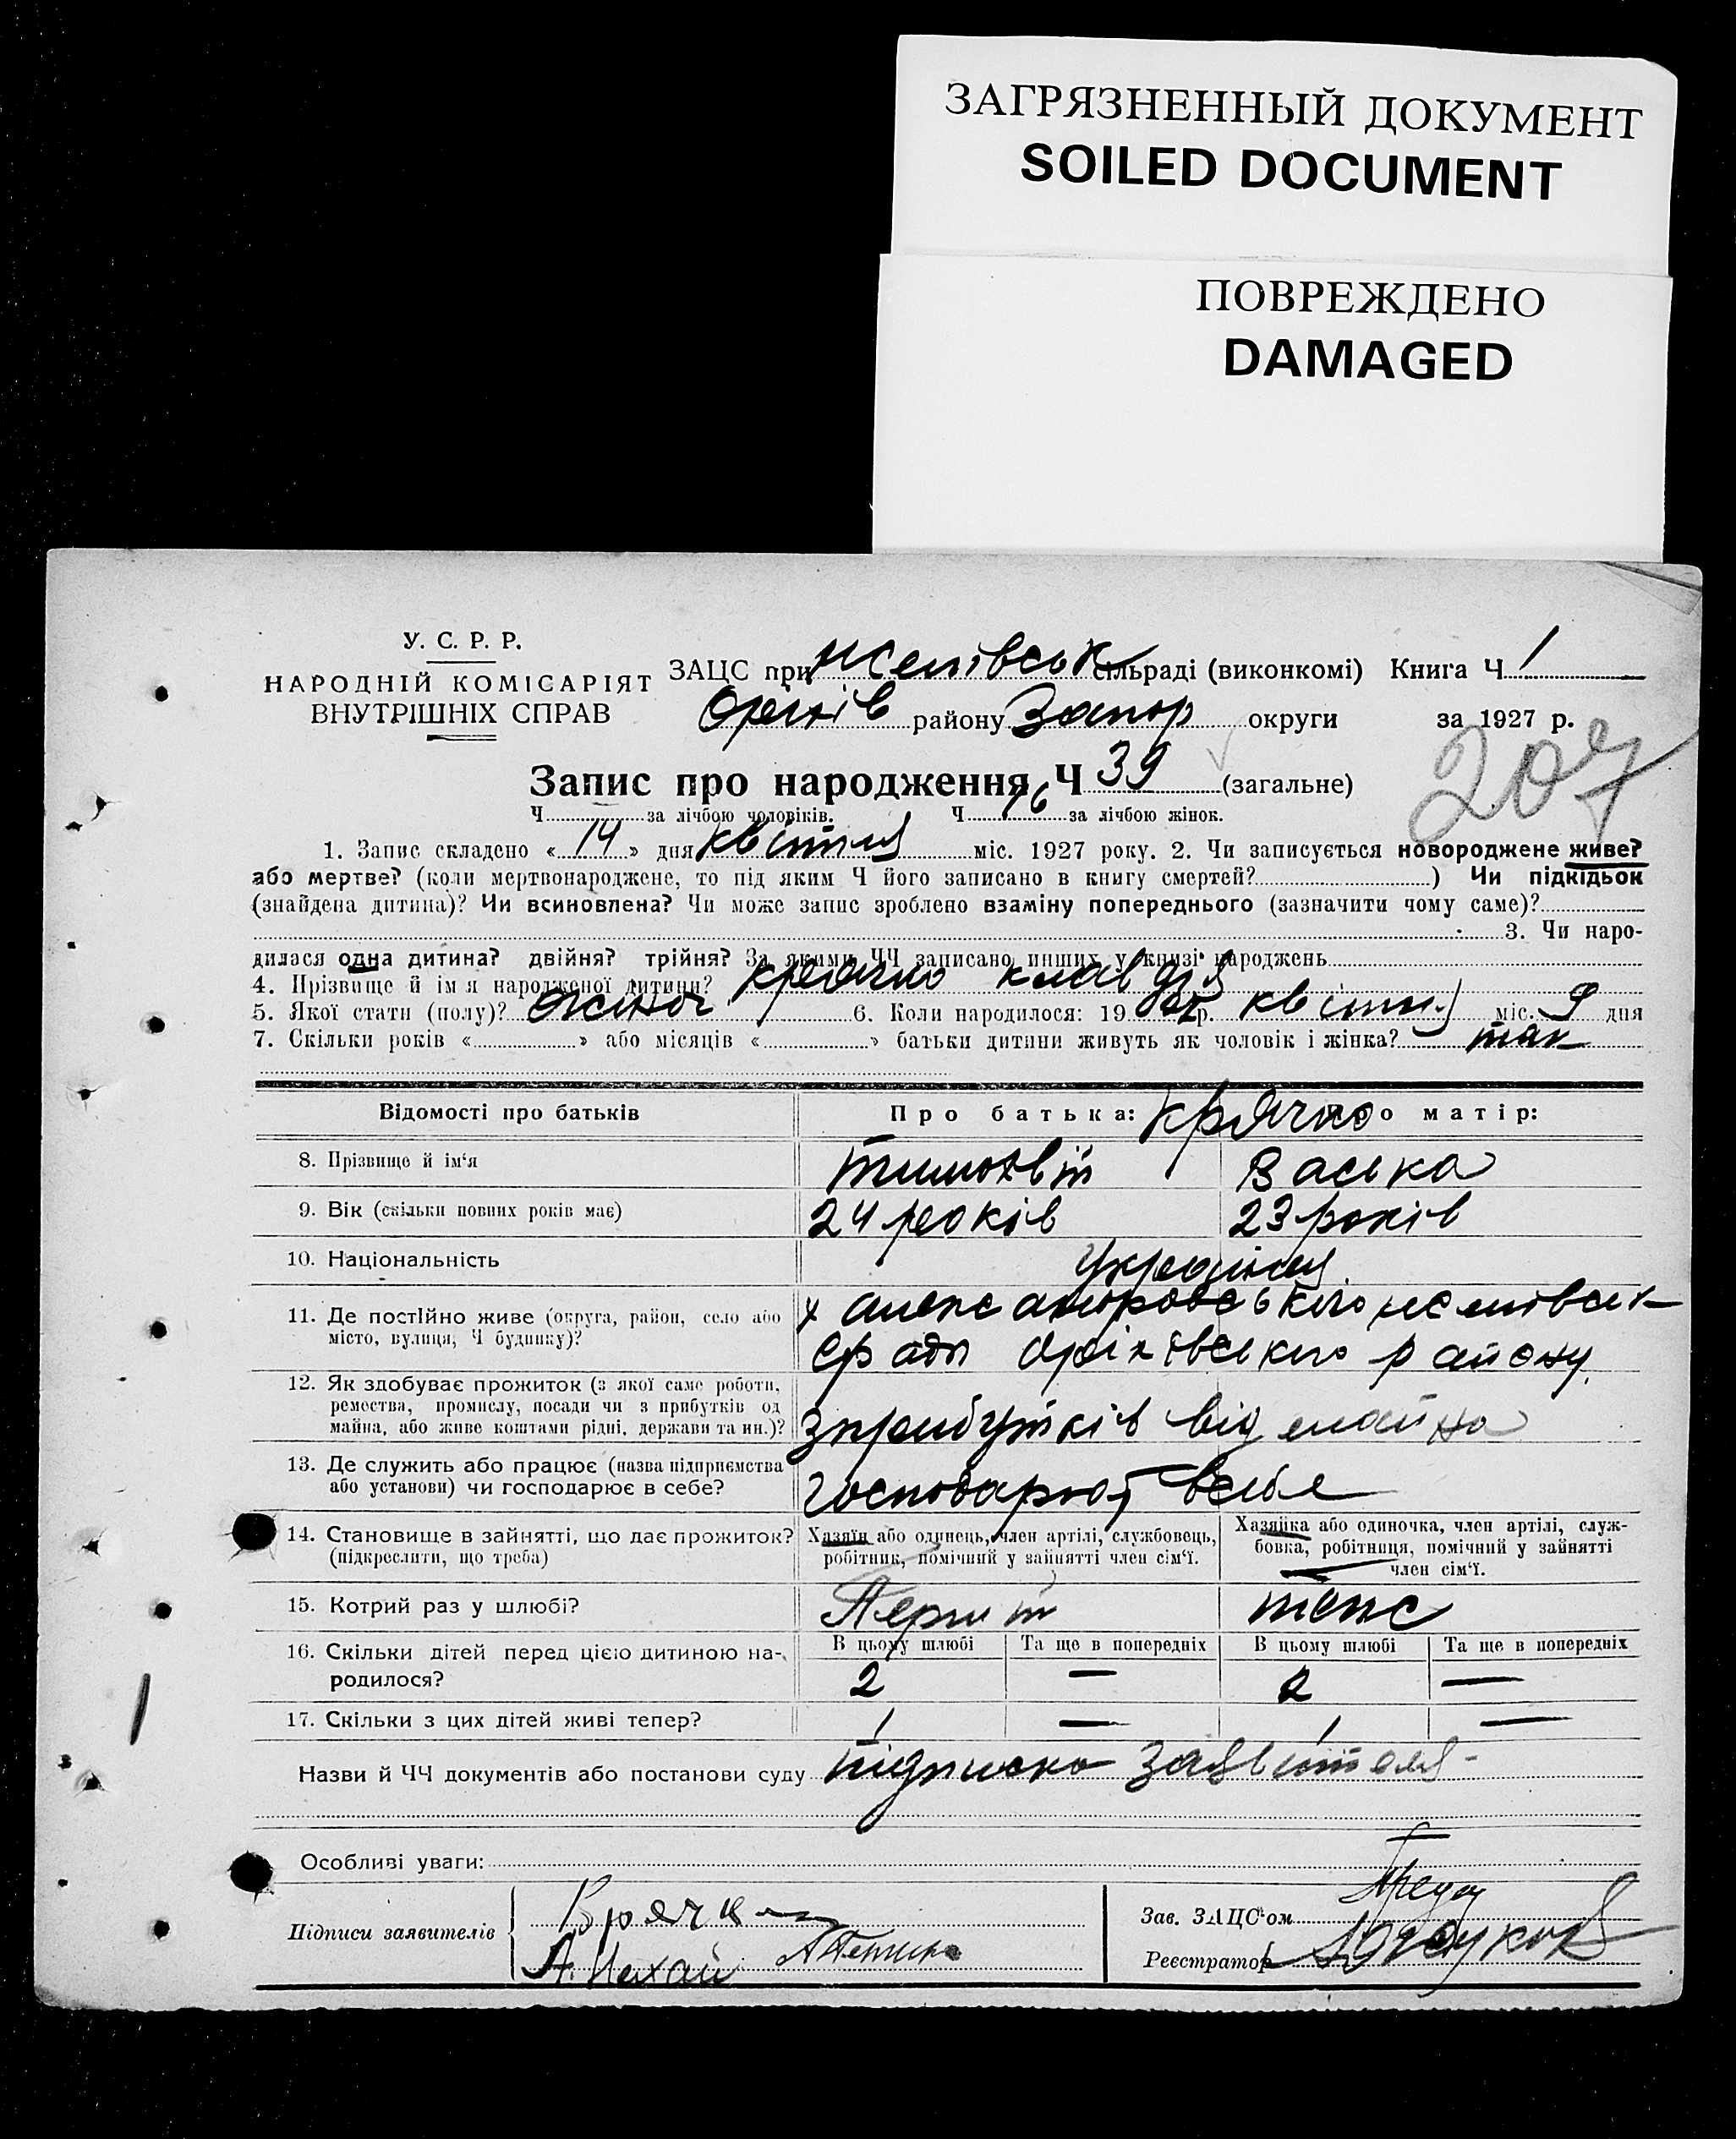 ЗАГРЯЗНЕННЫЙ ДОКУМЕНТ
SOILED DOCUMENT
ПОВРЕЖДЕНО
DAMAGED
У. С. Р. Р.
НАРОДНІЙ КОМІСАРІЯТ
ВНУТРІШНІХ СПРАВ
ЗАЦС при сільраді (виконкомі) Книга Ч 1
Оріхів району Запор округи за 1927 р.
207
Запис про народження Ч 39 (загальне)
Ч за лічбою чоловіків. Ч 16 за лічбою жінок.
1. Запис складено « 14 » дня квітня міс. 1927 року. 2. Чи записується новороджене живе?
або мертве? (коли мертвонароджене, то під яким Ч його записано в книгу смертей? ) Чи підкідьок
(знайдена дитина)? Чи всиновлена? Чи може запис зроблено взаміну попереднього (зазначити чому саме)?
3. Чи наро-
дилася одна дитина? двійня? трійня? За якими ЧЧ записано инших у книзі народжень
4. Прізвище й ім'я народженої дитини? Крячко Клавдія
5. Якої стати (полу)? жіноч 6. Коли народилося: 19 27 р. квітня міс. 9 дня
7. Скільки років « » або місяців « » батьки дитини живуть як чоловік і жінка? так
Відомості про батьків Про батька: Крячко Про матір:
8. Прізвище й ім'я Тимохвій Васька
9. Вік (скільки повних років має) 24 років 23 років
10. Національність Україній
11. Де постійно живе (округа, район, село або
місто, вулиця, Ч будинку)?
х Александровського
Сради Оріхівського району
12. Як здобуває прожиток (з якої саме роботи,
ремества, промислу, посади чи з прибутків од
майна, або живе коштами рідні, держави та ин.)?
з прибутків від майна
13. Де служить або працює (назва підприємства
або установи) чи господарює в себе?
господарют всебе
14. Становище в зайнятті, що дає прожиток?
(підкреслити, що треба)
Хазяїн або одинець, член артілі, службовець,
робітник, помічний у зайнятті член сім'ї.
Хазяйка або одиночка, член артілі, служ-
бовка, робітниця, помічний у зайнятті
член сім'ї.
15. Котрий раз у шлюбі? Перший тоже
16. Скільки дітей перед цією дитиною на-
родилося?
В цьому шлюбі Та ще в попередніх В цьому шлюбі Та ще в попередніх
2 — 2 —
17. Скільки з цих дітей живі тепер? 1 — 1 —
Назви й ЧЧ документів або постанови суду підписка заявітеля
Особливі уваги:
Підписи заявителів
Крячко
А. Михай
Зав. ЗАЦС'ом
Реєстратор